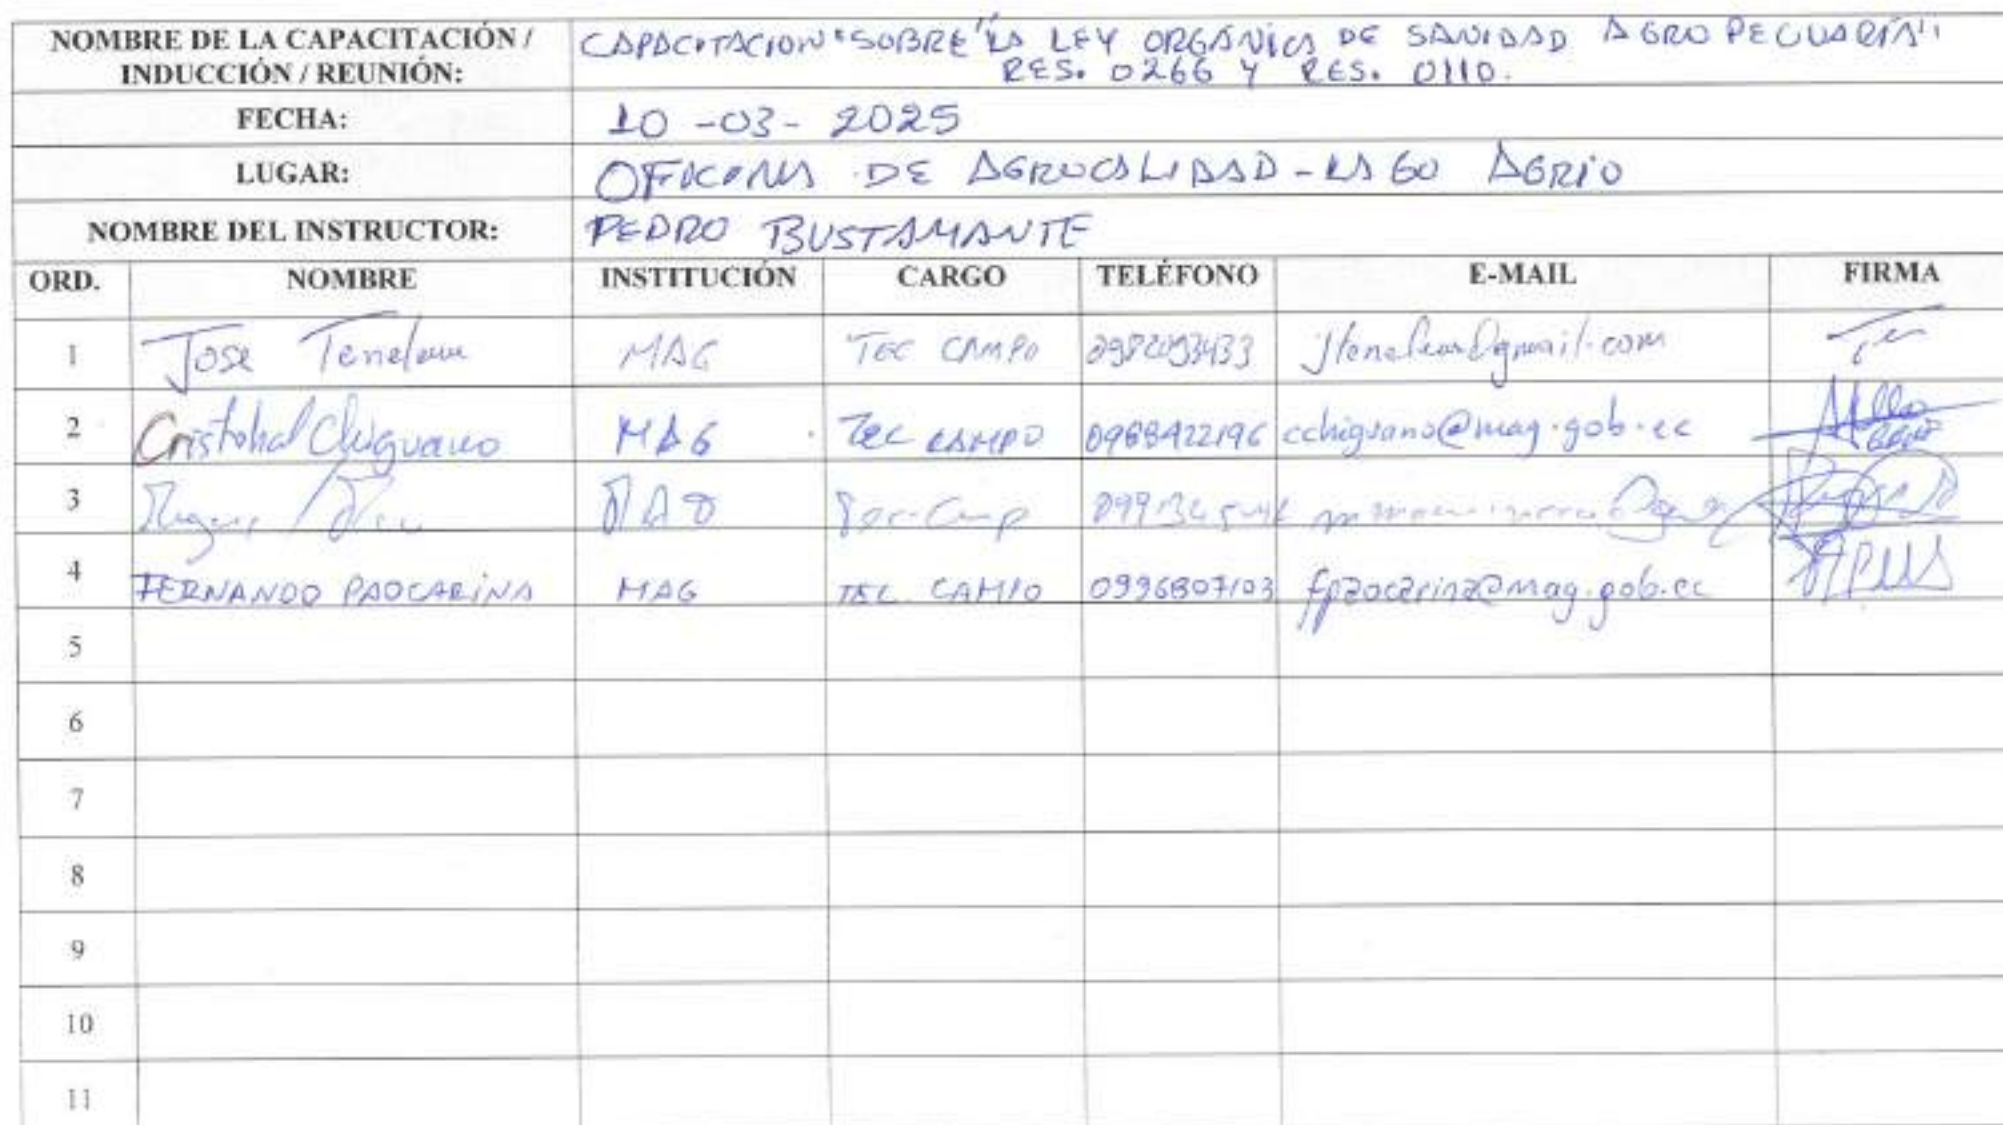 NOMBRE DE LA CAPACITACIÓN /
INDUCCIÓN / REUNIÓN:
CAPACITACION "SOBRE "LA LEY ORGÁNICA DE SANIDAD AGROPECUARIA"
RES. 0266 Y RES. 0110.
FECHA: 10-03-2025
LUGAR: OFICINA DE AGROCALIDAD-LAGO AGRIO
NOMBRE DEL INSTRUCTOR: PEDRO BUSTAMANTE
ORD. NOMBRE INSTITUCIÓN CARGO TELÉFONO E-MAIL FIRMA
1 Jose MAG TEC CAMPO
2 Cristobal Chiguano MAG Tec CAMPO 0968422196 cchiguano@mag.gob.ec
3
4 FERNANDO PAOCARINA MAG TEC CAMPO 0996807103 fpaocarina@mag.gob.ec
5
6
7
8
9
10
11